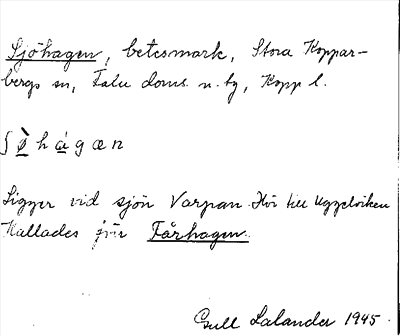 Sjöhagen, betesmark, Stora Koppar-
bergs sn, Falu doms. n. tg, Kopp l.
ʃö̀hágæn
Ligger vid sjön Varpan. Hör till Uggelviken
Kallades förr Fårhagen.
Gull Lalander 1945.